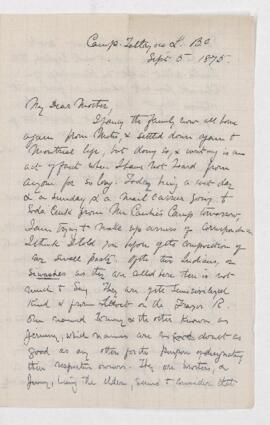 Camp. Tatlayoco L. B.C.
Sept 5. 1875.
My Dear Mother,
I fancy the family now all home
again from Metis, & settled down again to
Montreal life, but doing so, & writing is an
act of faith when I have not heard from
anyone for so long. Today being a wet day
& a Sunday & a mail carrier going to
Soda Creek from Mr Cambie's Camp tomorrow,
I am trying to make up arrears of correspondence
I think I told you before of the composition of
my small party. Of the two Indians, or
Siwashes as they are called here there is not
much to say. They are quite
kind & from on the Frazer R.
One named Tommy & the other known as
Jimmy, which names are no doubt as
good as any other for the purpose of designating
their respective owners. They are brothers, &
Jimmy, being the elder, seems to consider that